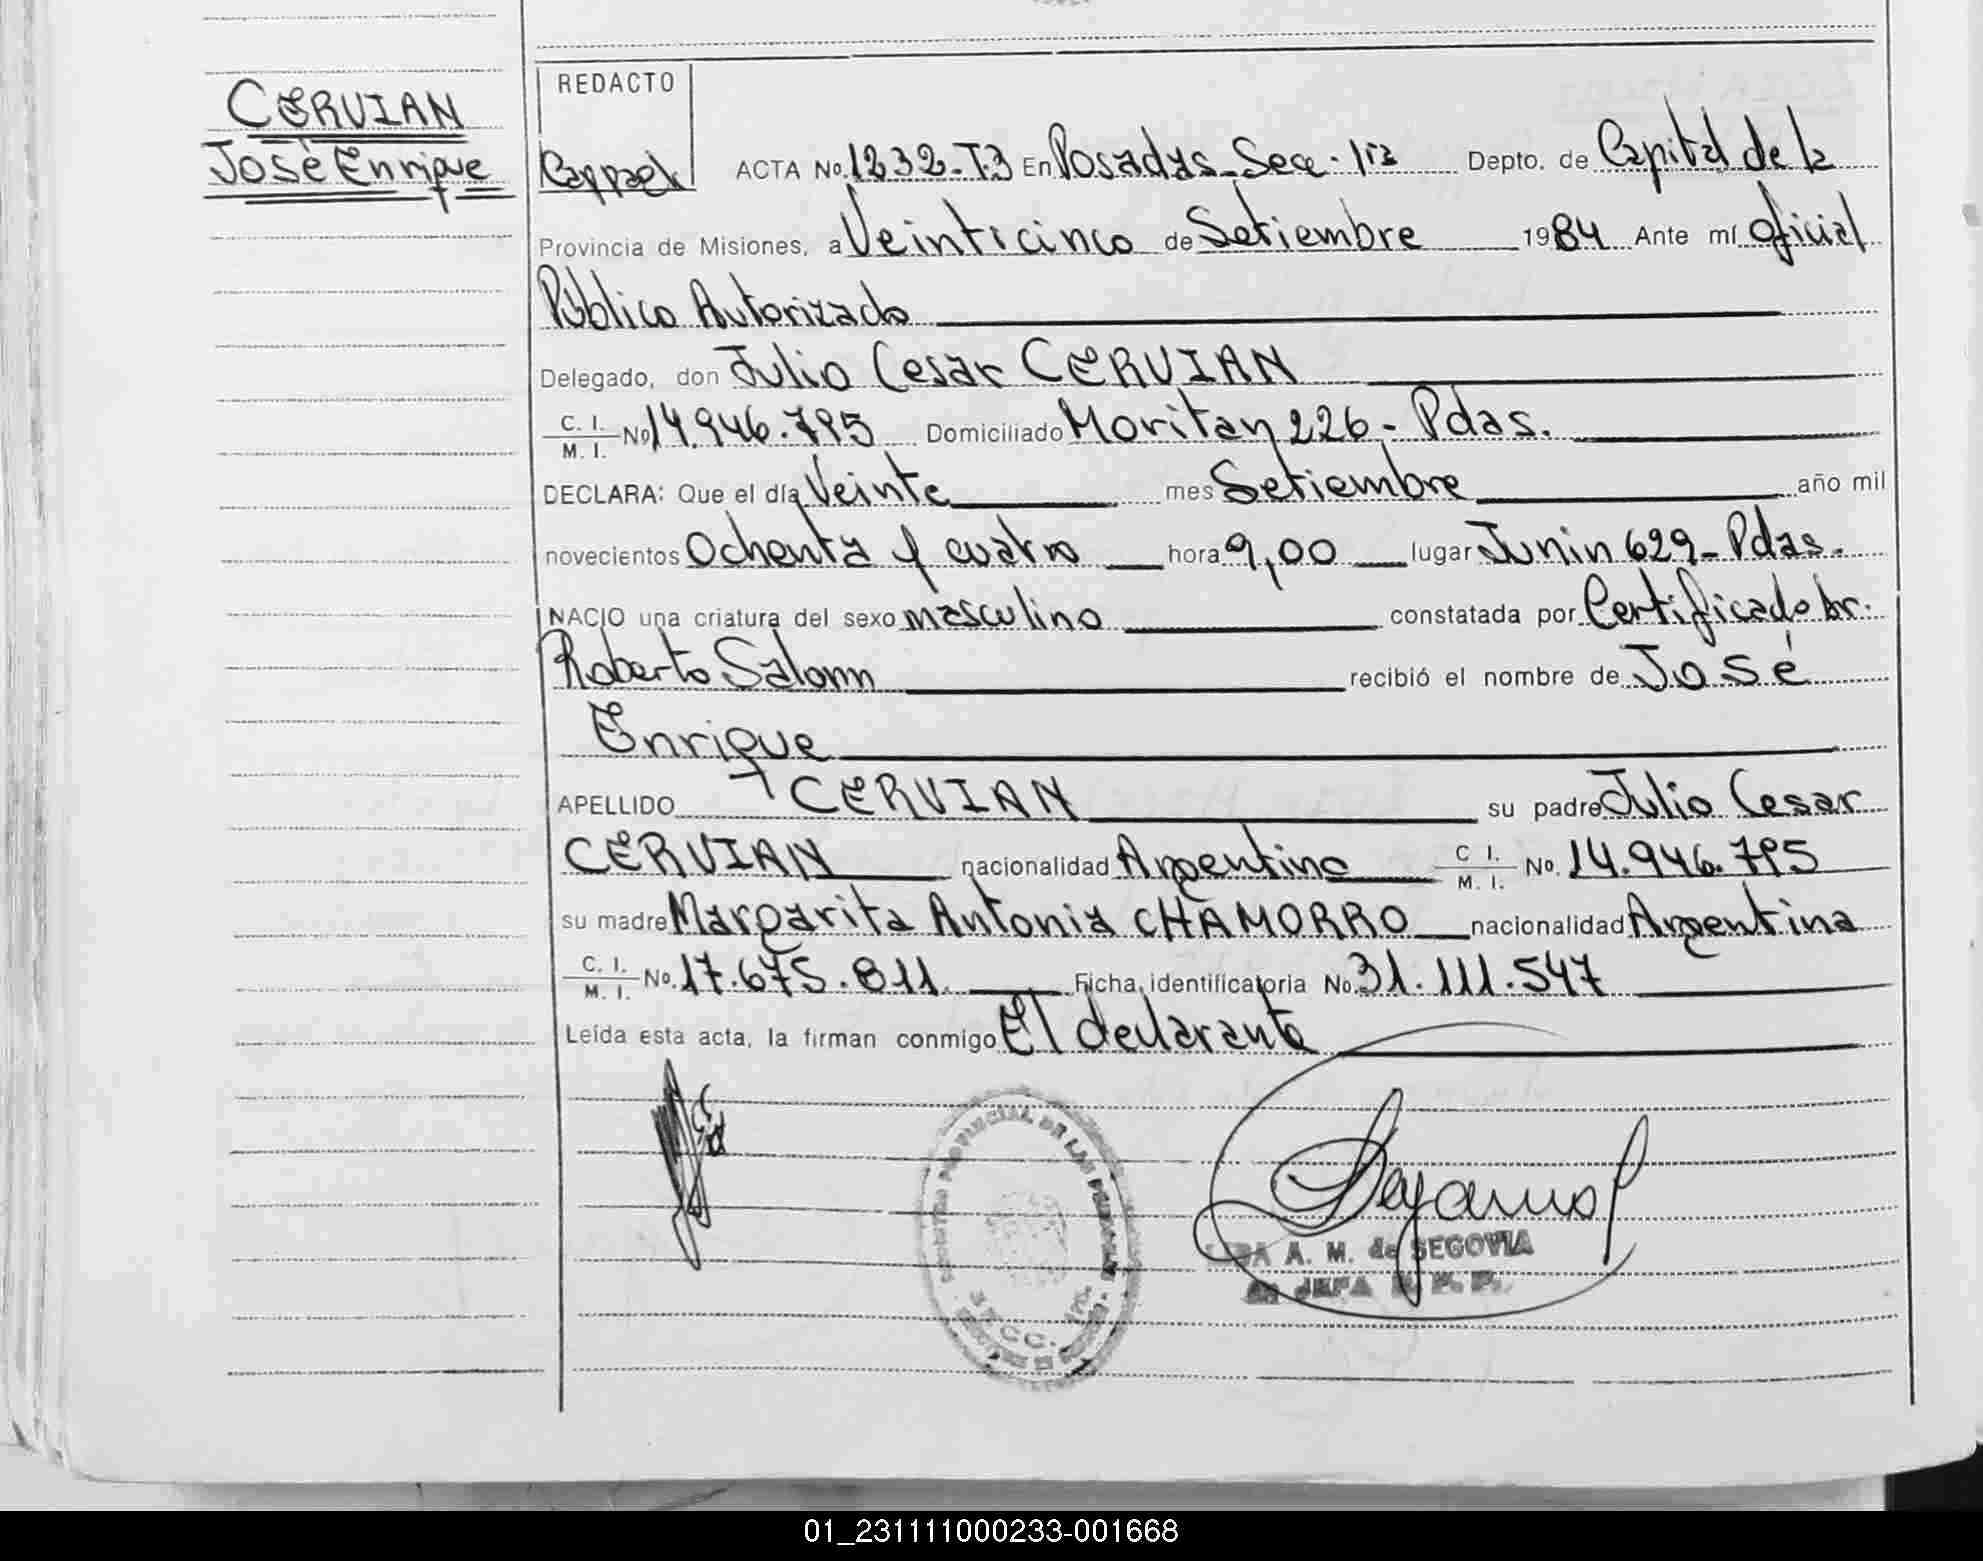 CERVIAN
José Enrique
REDACTO
ACTA No. 1232-T3 En Posadas Secc. 1ra Depto. de Capital de la
Provincia de Misiones, a Veinticinco de Setiembre 1984 Ante mí Oficial
Público Autorizado
Delegado, don Julio Cesar CERVIAN
C. I.
M. I. No 14.946.795 Domiciliado Moritan 226 - Pdas.
DECLARA: Que el día Veinte mes Setiembre año mil
novecientos Ochenta y cuatro hora 9,00 lugar Junin 629 - Pdas.
NACIO una criatura del sexo masculino constatada por Certificado Dr.
Roberto recibió el nombre de José
Enrique
APELLIDO CERVIAN su padre Julio Cesar
CERVIAN nacionalidad Argentino C I.
M. I. No. 14.946.795
su madre Margarita Antonia CHAMORRO nacionalidad Argentina
C. I.
M. I. No. 17.675.811 Ficha identificatoria No. 31.111.547
Leída esta acta, la firman conmigo El declarante
PROVINCIAL DE LAS PERSONAS
A. M. de SEGOVIA
JEFA
01_231111000233-001668